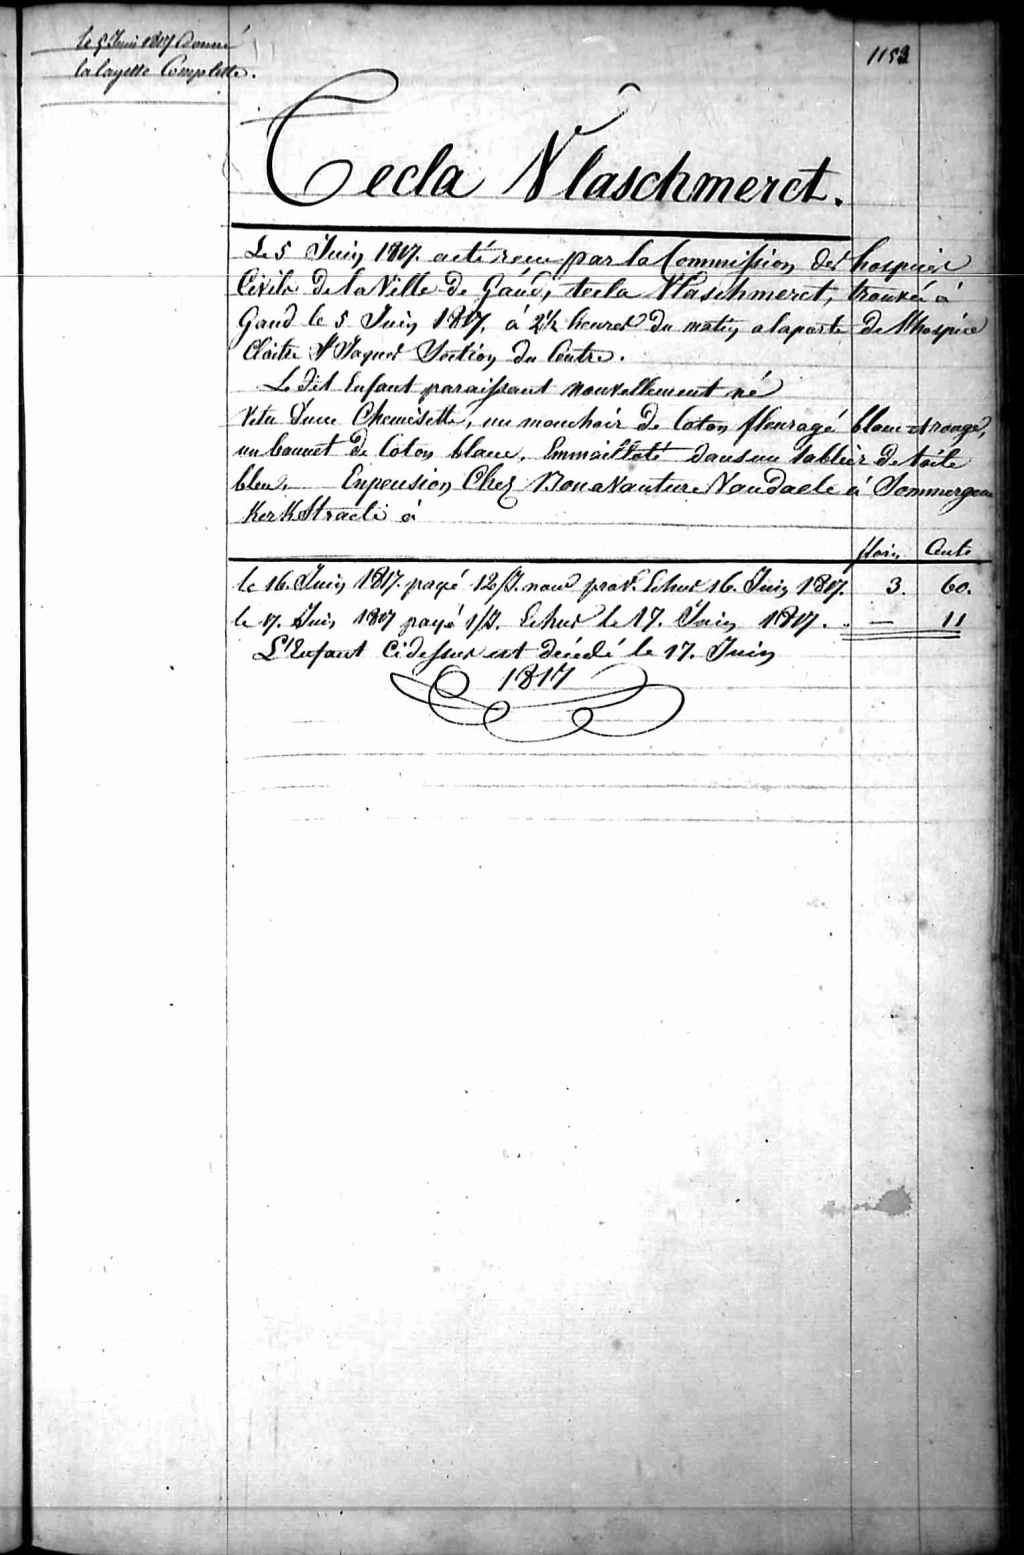 le 5 Juin 1817 Donné
la layette Complette.
1153
Tecla Vlaschmerct.
Le 5 Juin 1817. a eté recu par la Commission des hospices
Civils de la Ville de Gand, tecla Vlaschmerct, trouvée à
Gand le 5 Juin 1817, à 2½ heures du matin a la porte de l'hospice
Cloitre St Jaques Section du Centre.
Le dit Enfant paraissant nouvellement né
Vetu d'une Chemisette, un mouchoir de Coton fleuragé blanc et rouge,
un bonnet de Coton blanc, Emmailloté dans un tablier de toile
bleu. Enpension Chez Bonavanture Vandaele à Sommergem
Kerkstraete à
florin Cents
le 16. Juin 1817. payé 12 f. nour prov. Echus 16. Juin 1817. 3. 60.
le 17. Juin 1817 payé 1 f. Echus le 17. Juin 1817. — 11
L'Enfant Cidessus est décédé le 17. Juin
1817